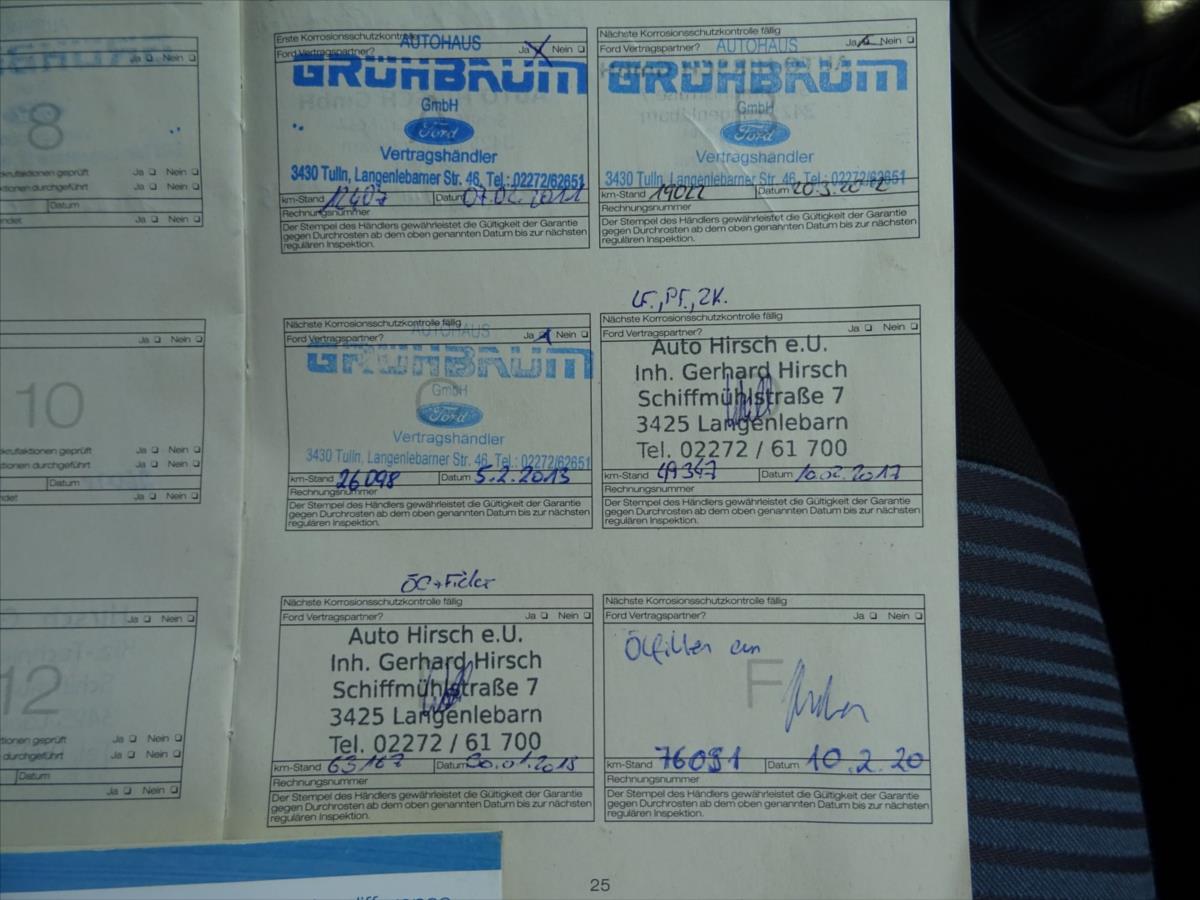 8
Ja ❏ Nein ❏
geprüft Ja ❏ Nein ❏
durchgeführt Ja ❏ Nein ❏
Datum
Ja ❏ Nein ❏
10
Ja ❏ Nein ❏
geprüft Ja ❏ Nein ❏
durchgeführt Ja ❏ Nein ❏
Datum
Ja ❏ Nein ❏
12
Ja ❏ Nein ❏
geprüft Ja ❏ Nein ❏
durchgeführt Ja ❏ Nein ❏
Datum
Ja ❏ Nein ❏
Erste Korrosionsschutzkontrolle
Ford Vertragspartner? Ja ❏ Nein ❏
AUTOHAUS
GRÜHBAUM
GmbH
Ford
Vertragshändler
3430 Tulln, Langenlebarner Str. 46, Tel.: 02272/62651
km-Stand 12407 Datum
Rechnungsnummer
Der Stempel des Händlers gewährleistet die Gültigkeit der Garantie
gegen Durchrosten ab dem oben genannten Datum bis zur nächsten
regulären Inspektion.
Nächste Korrosionsschutzkontrolle fällig
Ford Vertragspartner? Ja ❏ Nein ❏
AUTOHAUS
GRÜHBAUM
GmbH
Ford
Vertragshändler
3430 Tulln, Langenlebarner Str. 46, Tel.: 02272/62651
km-Stand 19022 Datum 20.3.2012
Rechnungsnummer
Der Stempel des Händlers gewährleistet die Gültigkeit der Garantie
gegen Durchrosten ab dem oben genannten Datum bis zur nächsten
regulären Inspektion.
Nächste Korrosionsschutzkontrolle fällig
Ford Vertragspartner? Ja ❏ Nein ❏
AUTOHAUS
GRÜHBAUM
GmbH
Ford
Vertragshändler
3430 Tulln, Langenlebarner Str. 46, Tel.: 02272/62651
km-Stand 26098 Datum 5.2.2013
Rechnungsnummer
Der Stempel des Händlers gewährleistet die Gültigkeit der Garantie
gegen Durchrosten ab dem oben genannten Datum bis zur nächsten
regulären Inspektion.
LF., PF., ZK.
Nächste Korrosionsschutzkontrolle fällig
Ford Vertragspartner? Ja ❏ Nein ❏
Auto Hirsch e.U.
Inh. Gerhard Hirsch
Schiffmühlstraße 7
3425 Langenlebarn
Tel. 02272 / 61 700
km-Stand 49347 Datum 10.02.2017
Rechnungsnummer
Der Stempel des Händlers gewährleistet die Gültigkeit der Garantie
gegen Durchrosten ab dem oben genannten Datum bis zur nächsten
regulären Inspektion.
ÖL+Filter
Nächste Korrosionsschutzkontrolle fällig
Ford Vertragspartner? Ja ❏ Nein ❏
Auto Hirsch e.U.
Inh. Gerhard Hirsch
Schiffmühlstraße 7
3425 Langenlebarn
Tel. 02272 / 61 700
km-Stand 63167 Datum
Rechnungsnummer
Der Stempel des Händlers gewährleistet die Gültigkeit der Garantie
gegen Durchrosten ab dem oben genannten Datum bis zur nächsten
regulären Inspektion.
Nächste Korrosionsschutzkontrolle fällig
Ford Vertragspartner? Ja ❏ Nein ❏
Ölfilter
F
km-Stand 76091 Datum 10.2.20
Rechnungsnummer
Der Stempel des Händlers gewährleistet die Gültigkeit der Garantie
gegen Durchrosten ab dem oben genannten Datum bis zur nächsten
regulären Inspektion.
25